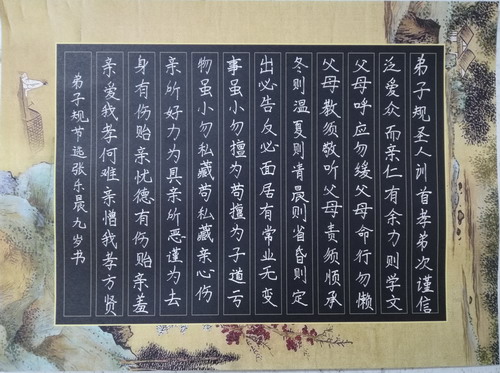 弟子规圣人训首孝弟次谨信
泛爱众而亲仁有余力则学文
父母呼应勿缓父母命行勿懒
父母教须敬听父母责须顺承
冬则温夏则凊晨则省昏则定
出必告反必面居有常业无变
事虽小勿擅为苟擅为子道亏
物虽小勿私藏苟私藏亲心伤
亲所好力为具亲所恶谨为去
身有伤贻亲忧德有伤贻亲羞
亲爱我孝何难亲憎我孝方贤
弟子规节选张乐晨九岁书